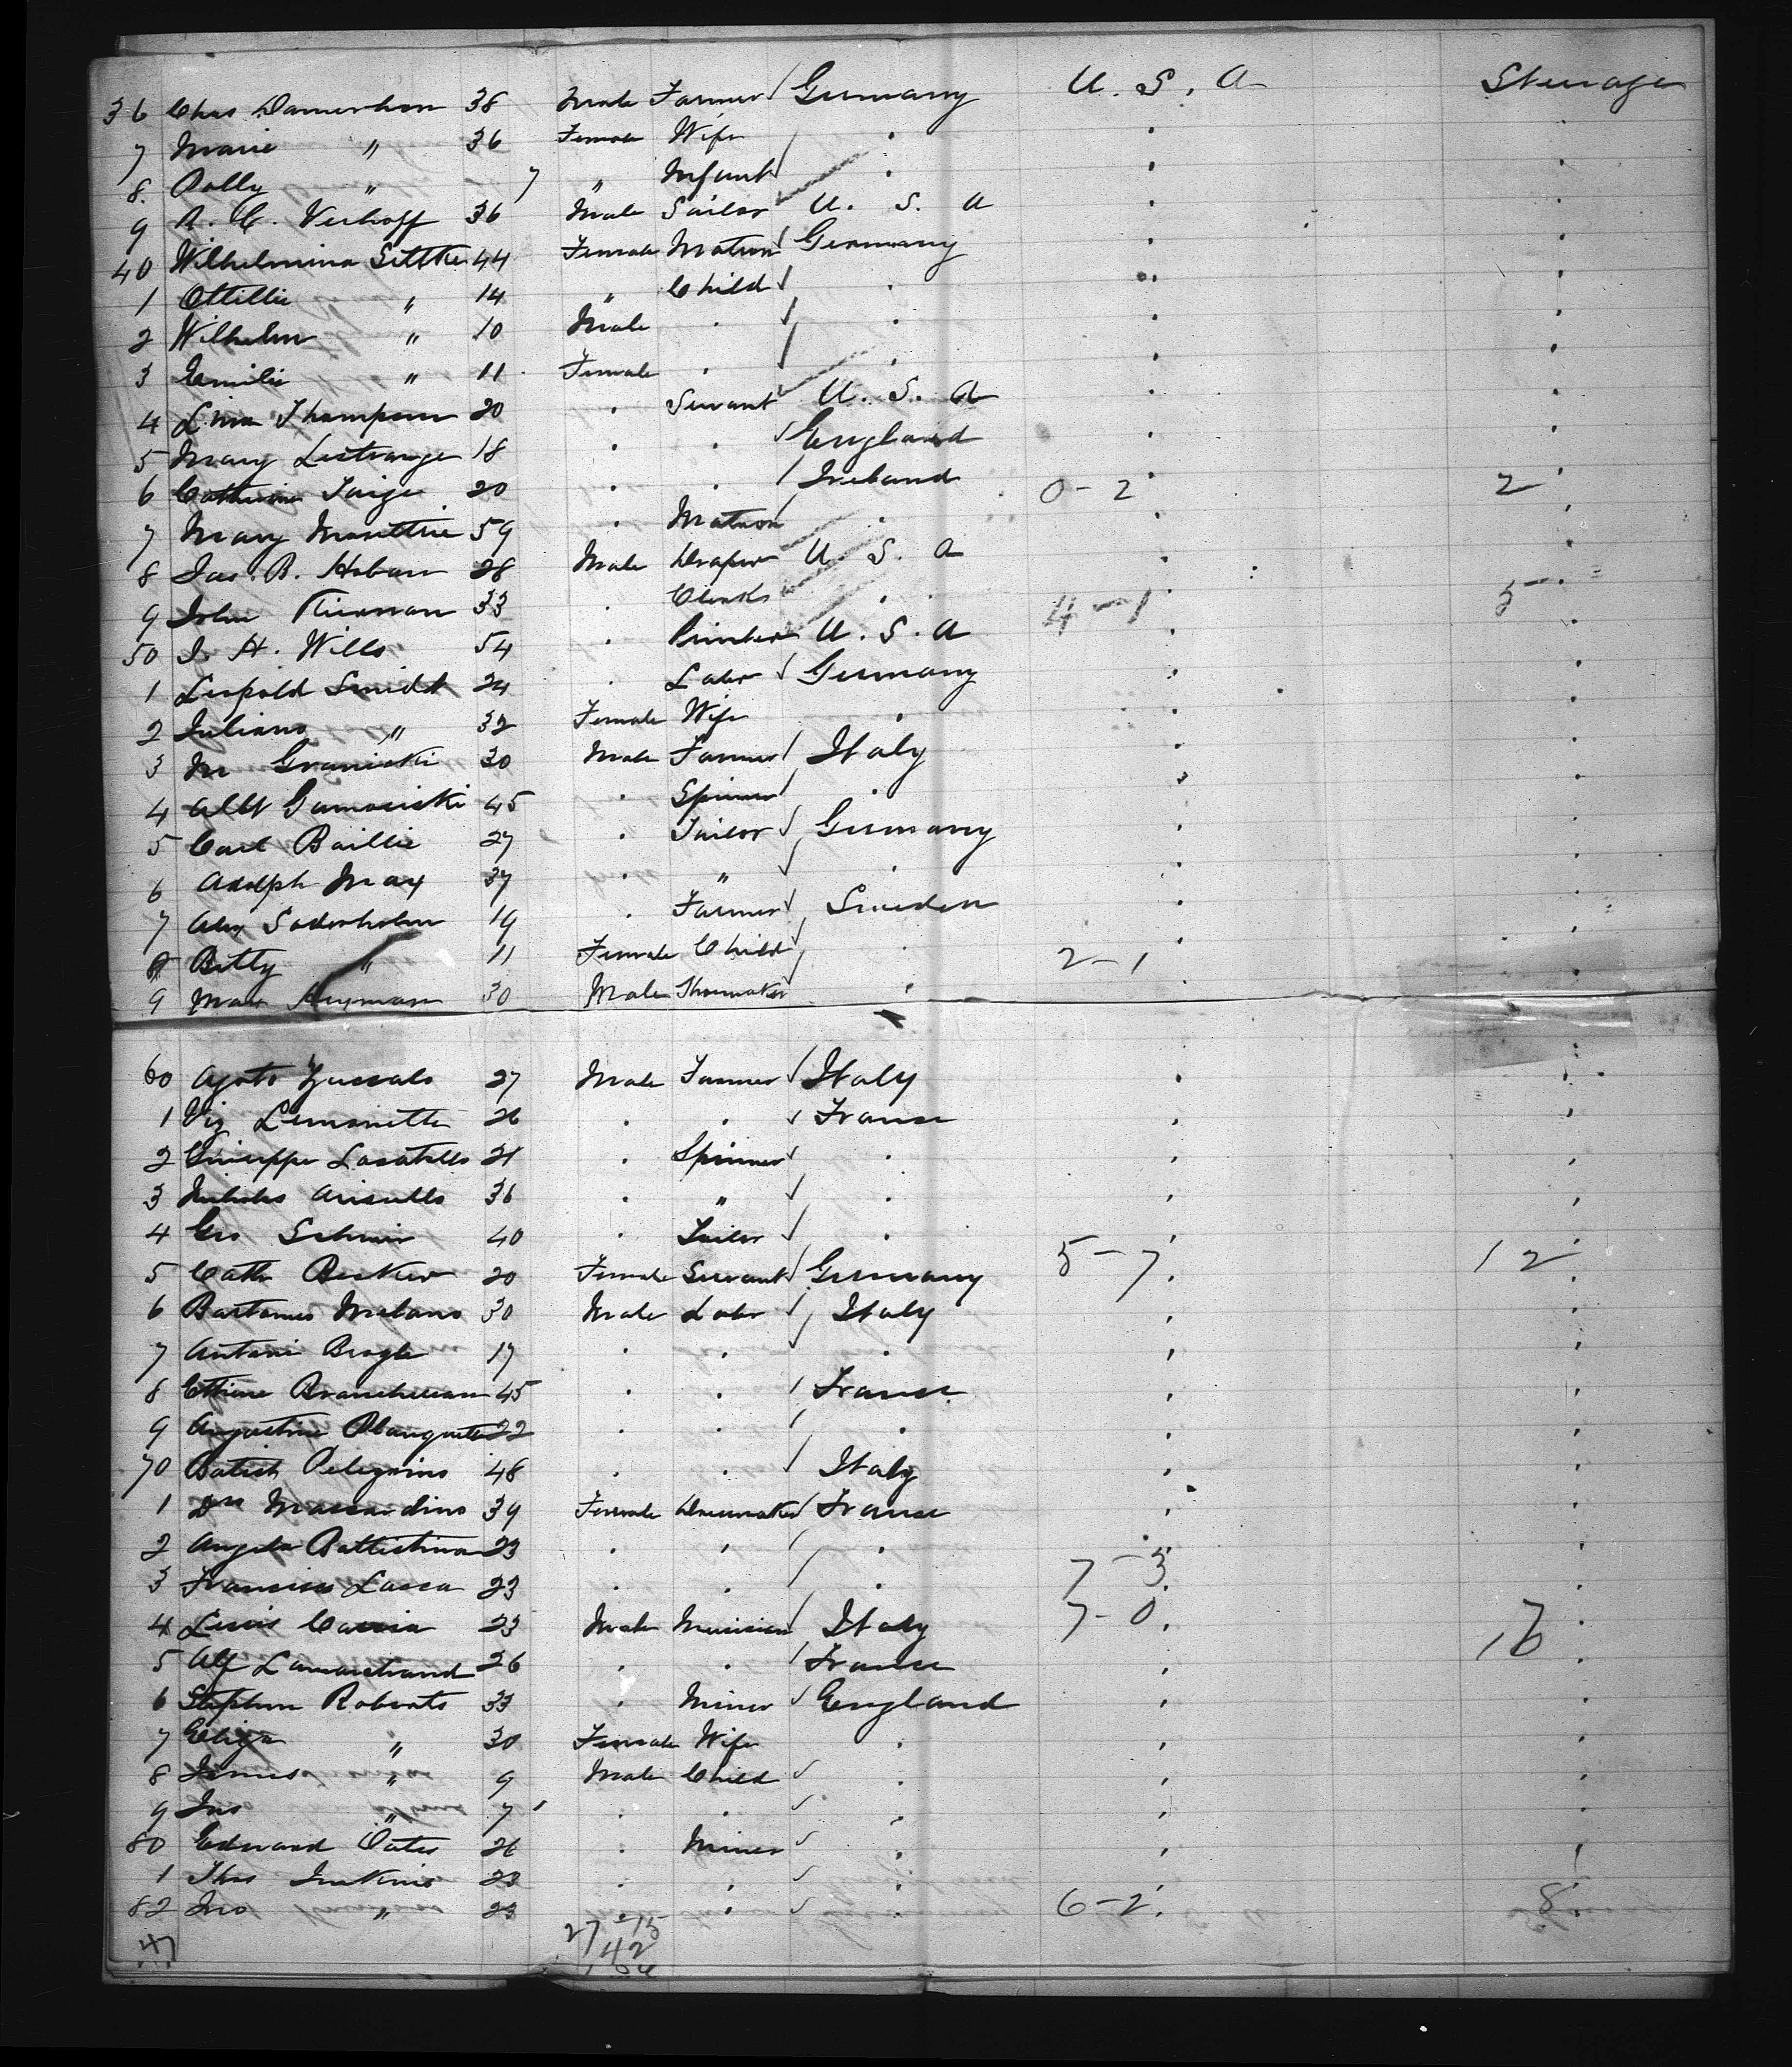 36 Chas Damerhon 38 Male Farmer Germany U. S. A Steerage
7 Marie " 36 Female Wife
8. Polly " 7 " Infant
9 A. C. Verhoff 36 Male Sailor U. S. A
40 Wilhelmina Sittke 44 Female Matron Germany
1 Ottillie " 14 " Child
2 Wilhelm " 10 Male
3 Emilie " 11 Female
4 Lina Thompson 20 Servant U. S. A
5 Mary Lestrange 18 England
6 Catherine 20 Ireland 0-2 2
7 Mary 59 Matron
8 Jas. B. Hoban 28 Male Draper U. S. A
9 John Kiernan 33 Clerk 4-1 5
50 J. H. Wills 54 Printer U. S. A
1 Leopold Smidt 24 Labr Germany
2 Juliana " 32 Female Wife
3 M Graniski 30 Male Farmer Italy
4 Albt 45 Spinner
5 Carl Baillie 27 Tailor Germany
6 Adolph May 37 "
7 Alex Soderholm 19 Farmer Sweden
8 Betty " 11 Female Child 2-1
9 Heyman 30 Male Shoemaker
60 27 Male Farmer Italy
1 26 France
2 Giuseppe Locatello 21 Spinner
3 Nicholas 36 "
4 Geo 40 Tailor
5 Cath Becker 20 Female Servant Germany 5-7 12
6 Milano 30 Male Labr Italy
7 Antoni 17
8 45 France
9 Augustine Planquette 22
70 Batist Peligrino 48 Italy
1 39 Female Dressmaker France
2 Angela Battistina 23 7-3
3 Francisca Lasca 23
4 Lewis 23 Male Musician Italy 7-0 16
5 Alf 26 France
6 Stephen Roberts 33 Miner England
7 Eliza " 30 Female Wife
8 James " 9 Male Child
9 Jno " 7
80 Edward Oates 26 Miner
1 Thos Jenkins 23
82 Jno " 23 6-2 8
47 27-15
42